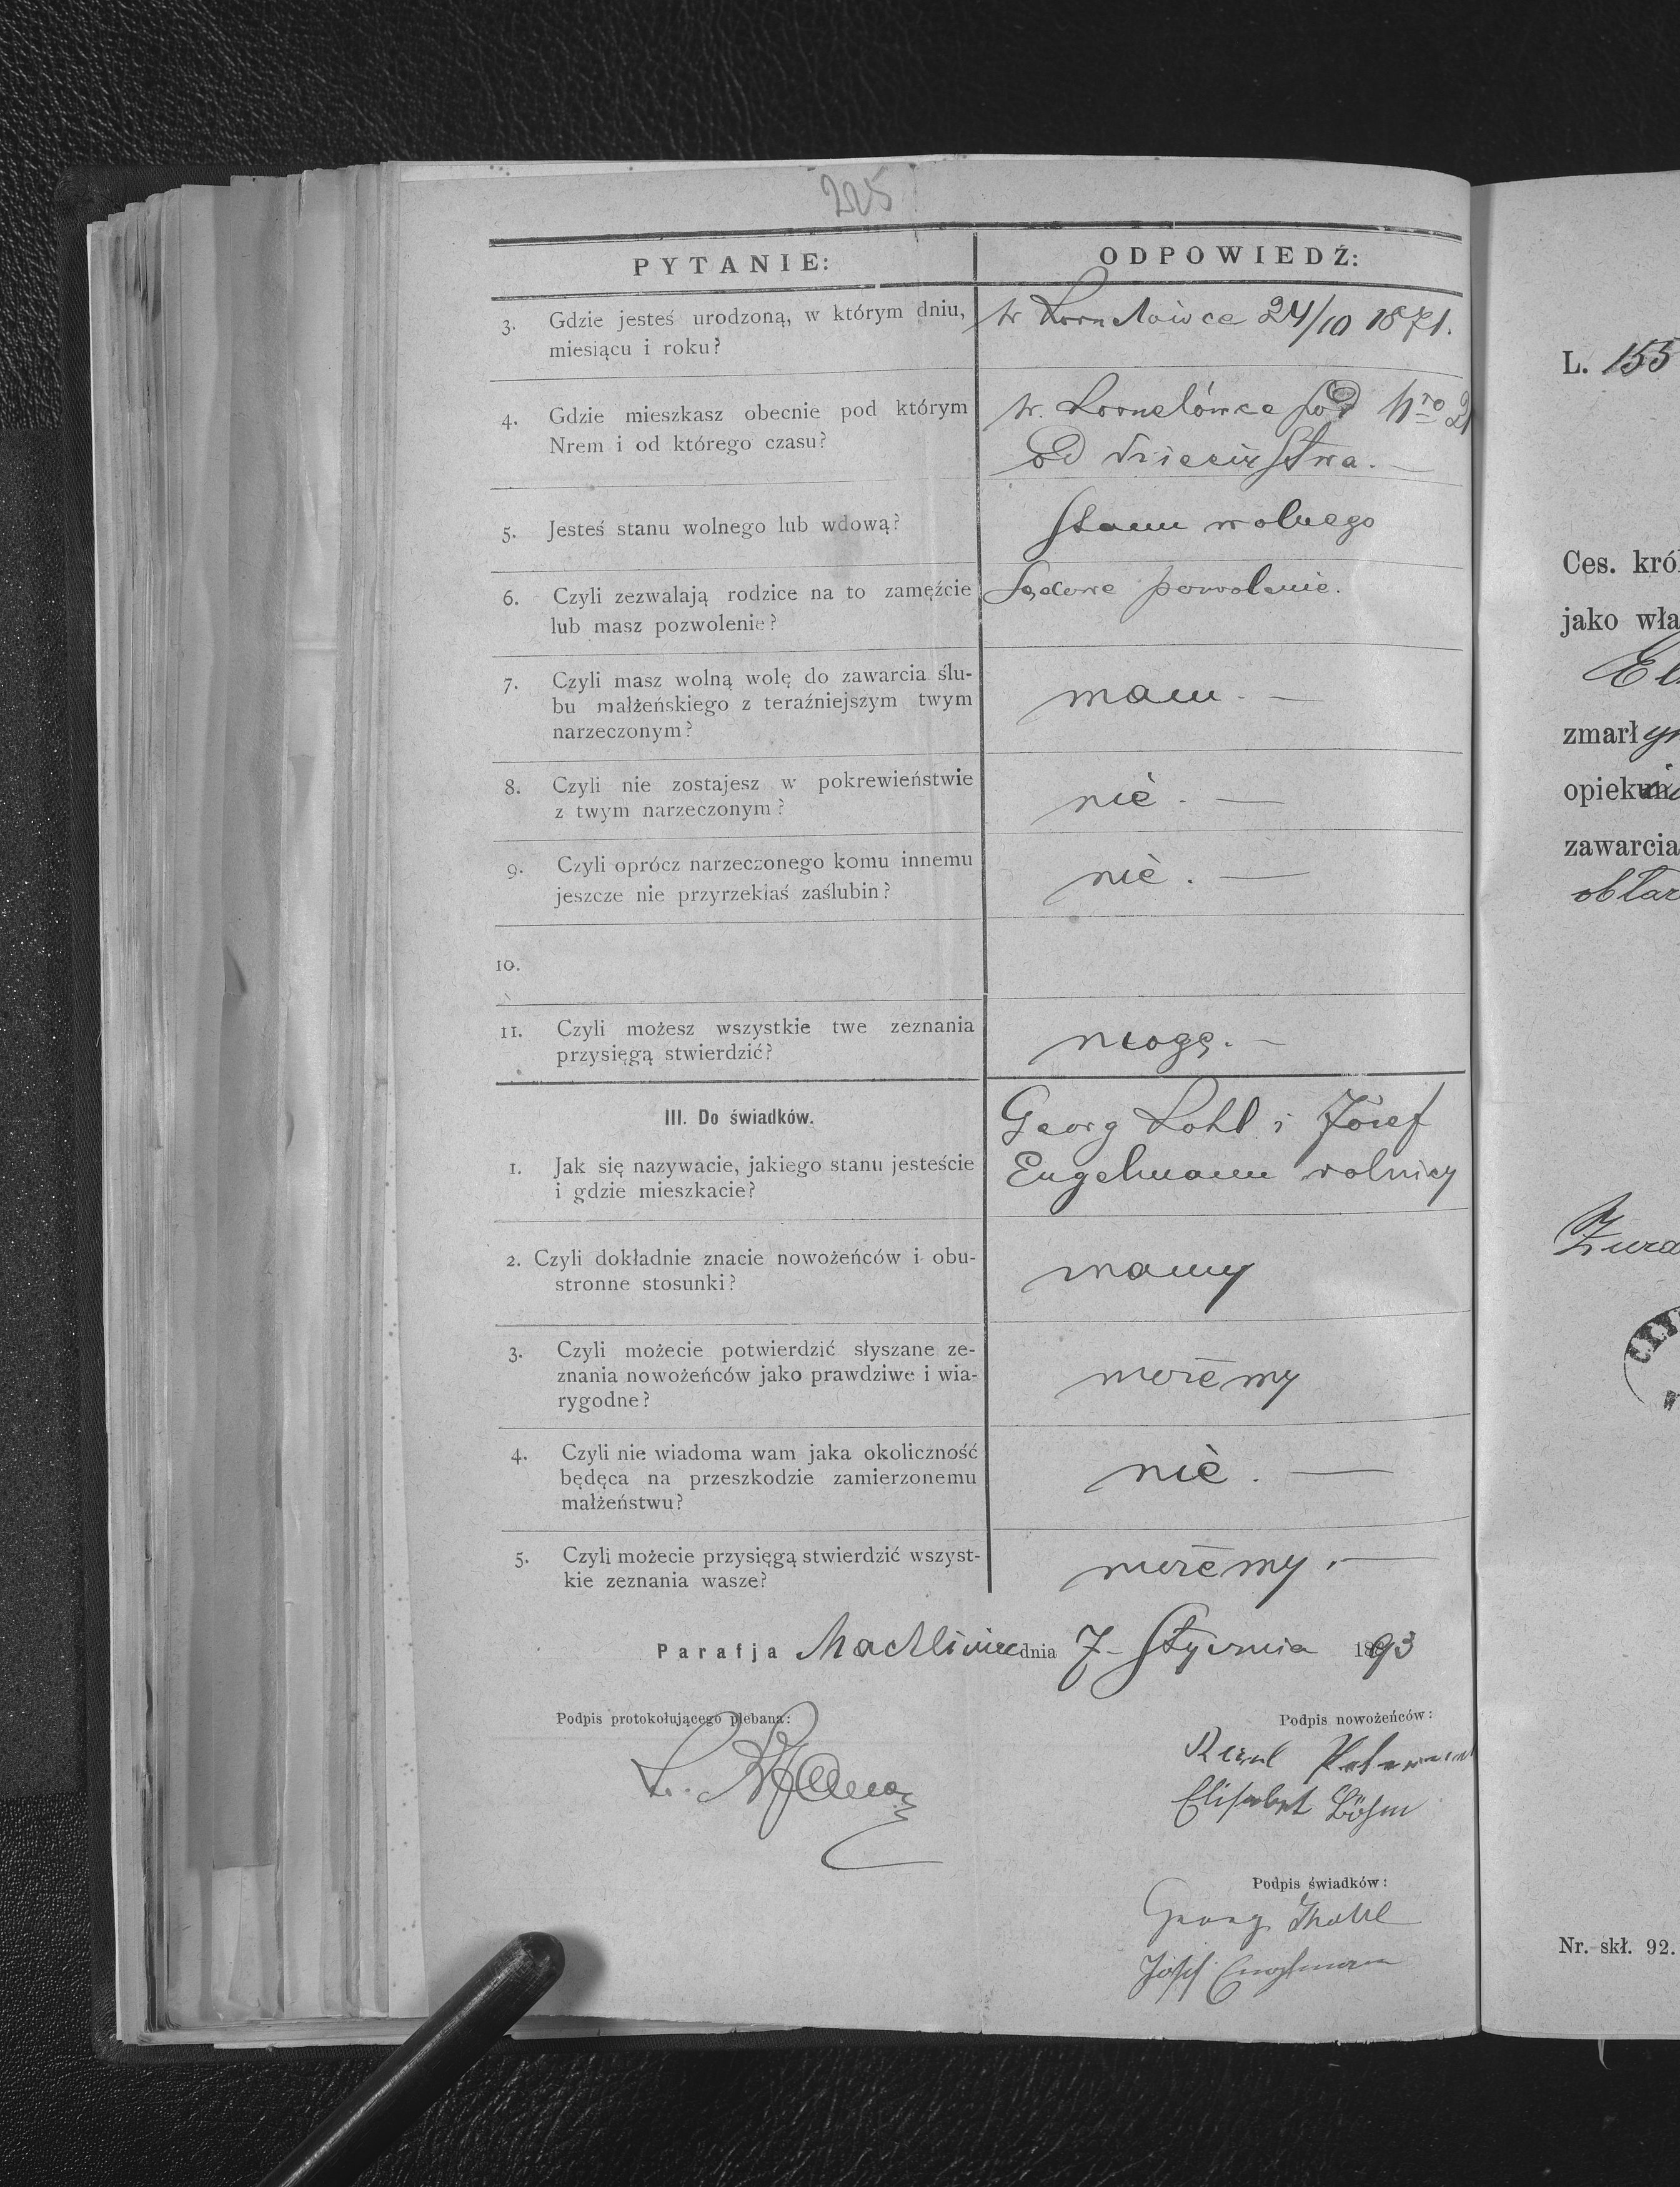 225
PYTANIE:
ODPOWIEDŹ:
3. Gdzie jesteś urodzoną, w którym dniu,
miesiącu i roku?
w Kornelówce 24/10 1871.
4. Gdzie mieszkasz obecnie pod którym
Nrem i od którego czasu?
w. Kornelówce pod Nro 21
od dzieciństwa. —
5. Jesteś stanu wolnego lub wdową?
Stanu wolnego
6. Czyli zezwalają rodzice na to zamęźcie
lub masz pozwolenie?
Sądowe pozwolenie.
7. Czyli masz wolną wolę do zawarcia ślu-
bu małżeńskiego z teraźniejszym twym
narzeczonym?
mam. —
8. Czyli nie zostajesz w pokrewieństwie
z twym narzeczonym?
nie. —
9. Czyli oprócz narzeczonego komu innemu
jeszcze nie przyrzekłaś zaślubin?
nie. —
10.
11. Czyli możesz wszystkie twe zeznania
przysięgą stwierdzić?
mogę. —
III. Do świadków.
1. Jak się nazywacie, jakiego stanu jesteście
i gdzie mieszkacie?
Georg Kohl i Józef
Engelmann rolnicy
2. Czyli dokładnie znacie nowożeńców i obu-
stronne stosunki?
znamy
3. Czyli możecie potwierdzić słyszane ze-
znania nowożeńców jako prawdziwe i wia-
rygodne?
możemy
4. Czyli nie wiadoma wam jaka okoliczność
będęca na przeszkodzie zamierzonemu
małżeństwu?
nie. —
5. Czyli możecie przysięgą stwierdzić wszyst-
kie zeznania wasze?
możemy. —
Parafja Machliniec dnia 7 Stycznia 1893
Podpis protokołującego plebana:
Podpis nowożeńców:
Elisabet Böhm
Podpis świadków:
Georg
Josef Engelmann
L. 155
Ces. kró
jako wła
El
zmarł
opiekun
zawarcia
Żura
Nr. skł. 92.